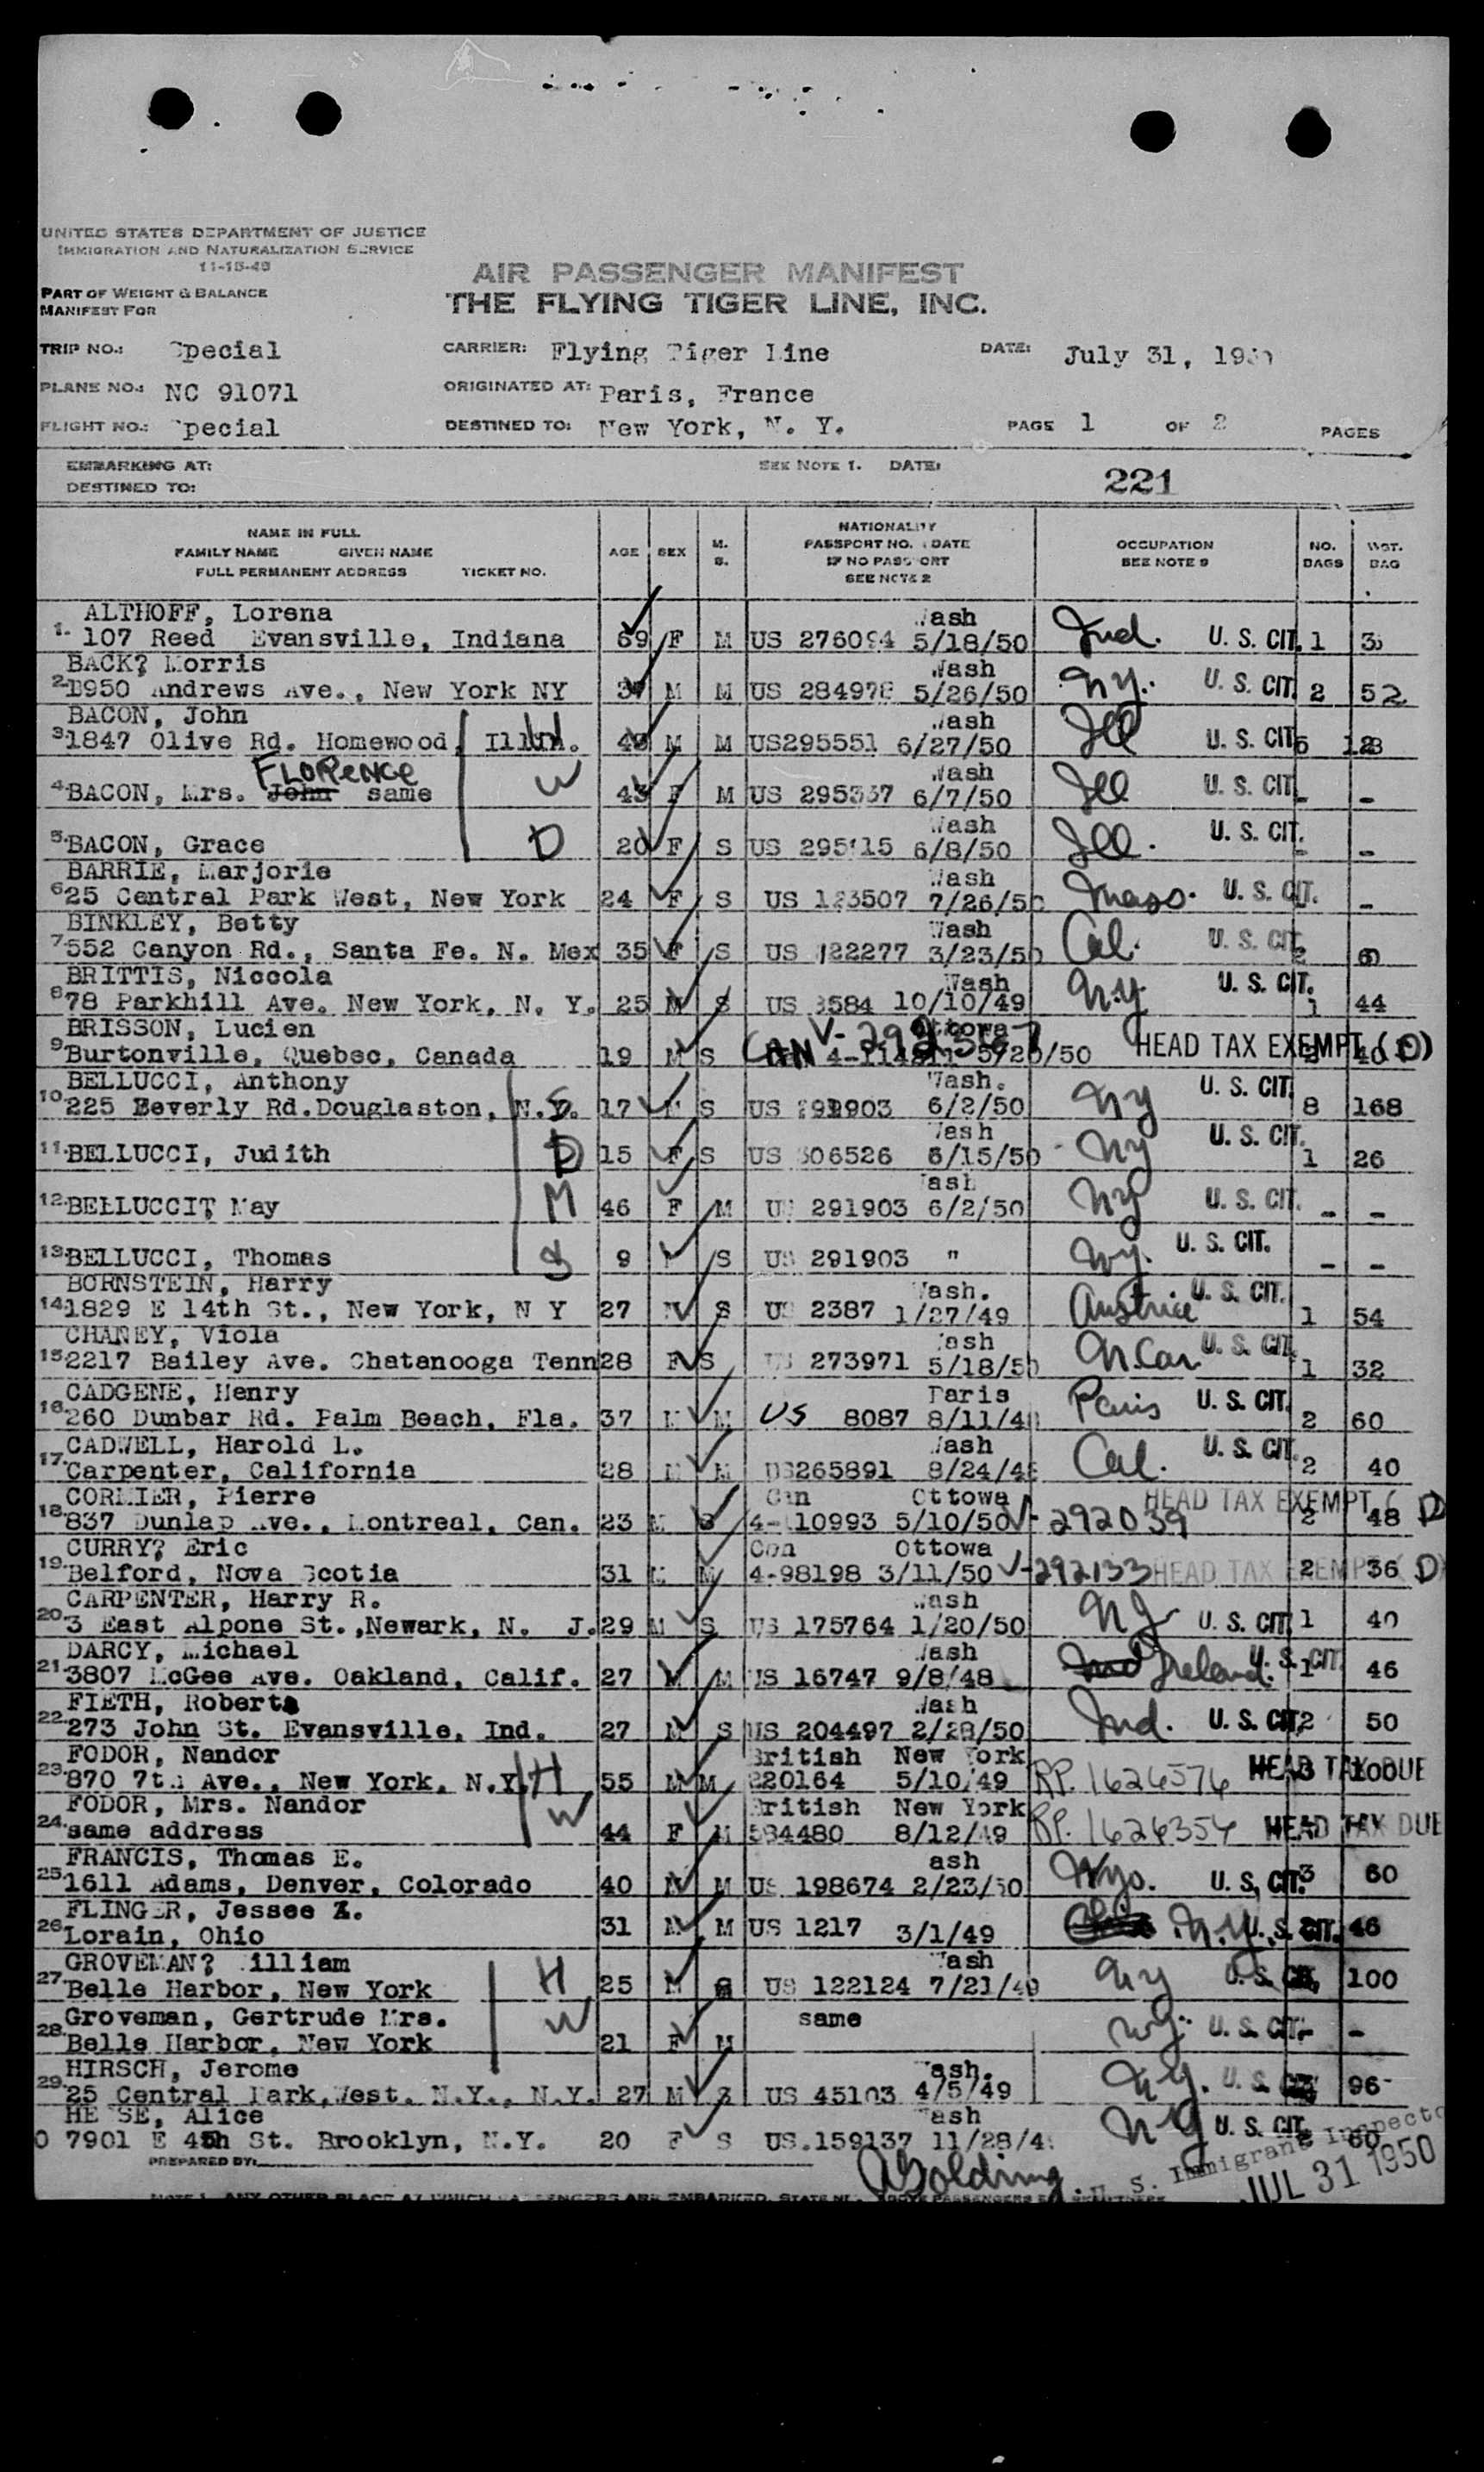 UNITED STATES DEPARTMENT OF JUSTICE
IMMIGRATION AND NATURALIZATION SERVICE
11-15-49
PART OF WEIGHT & BALANCE
MANIFEST FOR
AIR PASSENGER MANIFEST
THE FLYING TIGER LINE, INC.
TRIP NO.: Special CARRIER: Flying Tiger Line DATE: July 31, 1950
PLANE NO.: NC 91071 ORIGINATED AT: Paris, France
FLIGHT NO.: Special DESTINED TO: New York, N. Y. PAGE 1 OF 2 PAGES
EMBARKING AT: SEE NOTE 1. DATE:
DESTINED TO: 221
NAME IN FULL
FAMILY NAME GIVEN NAME
FULL PERMANENT ADDRESS TICKET NO.
AGE SEX M. S.
NATIONALITY
PASSPORT NO. DATE
IF NO PASSPORT
SEE NOTE 2
OCCUPATION
SEE NOTE 9
NO. BAGS
WGT. BAG
ALTHOFF, Lorena Wash
1. 107 Reed Evansville, Indiana 69 F M US 276094 5/18/50 Ind. U. S. CIT. 1
BACK? Morris Wash
2. 1950 Andrews Ave., New York NY M M US 284978 5/26/50 N.Y. U. S. CIT. 2 52
BACON, John Wash
3. 1847 Olive Rd. Homewood, H M M US295551 6/27/50 Ill U. S. CIT.
FLORENCE Wash
4. BACON, Mrs. John same W 43 F M US 295337 6/7/50 Ill U. S. CIT. - -
Wash
5. BACON, Grace D 20 F S US 6/8/50 Ill. U. S. CIT. - -
BARRIE, Marjorie Wash
6. 25 Central Park West, New York 24 F S US 123507 7/26/50 Mass. U. S. CIT. -
BINKLEY, Betty Wash
7. 552 Canyon Rd., Santa Fe. N. Mex 35 F S US 122277 3/23/50 Cal. U. S. CIT. 2
BRITTIS, Niccola Wash
8. 78 Parkhill Ave. New York, N. Y. 25 M S US 3584 10/10/49 N.Y U. S. CIT. 1 44
BRISSON, Lucien Ottowa
9. Burtonville, Quebec, Canada 19 M S CAN 5/20/50 HEAD TAX EXEMPT (D)
BELLUCCI, Anthony Wash.
10. 225 Beverly Rd. Douglaston, N.Y. S 17 M S US 291903 6/2/50 NY U. S. CIT. 8 168
Wash
11. BELLUCCI, Judith D 15 F S US 306526 6/15/50 NY U. S. CIT. 1 26
Wash
12. BELLUCCI, May M 46 F M US 291903 6/2/50 NY U. S. CIT. - -
13. BELLUCCI, Thomas S 9 M S US 291903 " NY. U. S. CIT. - -
BORNSTEIN, Harry Wash.
14. 1829 E 14th St., New York, N Y 27 M S US 2387 1/27/49 Austria U. S. CIT. 1 54
CHANEY, Viola Wash
15. 2217 Bailey Ave. Chatanooga Tenn 28 F S US 273971 5/18/50 N. Car U. S. CIT. 1 32
CADGENE, Henry Paris
16. 260 Dunbar Rd. Palm Beach, Fla. 37 M M US 8087 Paris U. S. CIT. 2 60
CADWELL, Harold L. Wash
17. Carpenter, California 28 M M US265891 Cal. U. S. CIT. 2 40
CORMIER, Pierre Can Ottowa HEAD TAX EXEMPT (D
18. 837 Dunlap Ave., Montreal, Can. 23 M S 4-110993 5/10/50 V-292039 2 48
CURRY? Eric Can Ottowa
19. Belford, Nova Scotia 31 M M 4-98198 3/11/50 V-292133 HEAD TAX EXEMPT (D) 2 36
CARPENTER, Harry R. Wash
20. 3 East Alpone St., Newark, N. J. 29 M S US 175764 1/20/50 NJ U. S. CIT. 1 40
DARCY, Michael Wash
21. 3807 McGee Ave. Oakland, Calif. 27 M M US 16747 9/8/48 Ireland. U. S. CIT. 1 46
FIETH, Roberta Wash
22. 273 John St. Evansville, Ind. 27 M S US 204497 2/28/50 Ind. U. S. CIT. 2 50
FODOR, Nandor British New York
23. 870 7th Ave., New York, N.Y. H 55 M M 220164 5/10/49 RP. 1626576 HEAD TAX DUE
FODOR, Mrs. Nandor British New York
24. same address W 44 F M 584480 8/12/49 RP. 1626354 HEAD TAX DUE
FRANCIS, Thomas E. Wash
25. 1611 Adams, Denver, Colorado 40 M M US 198674 2/23/50 Wyo. U. S. CIT. 3 60
FLINGER, Jessee
26. Lorain, Ohio 31 M M US 1217 3/1/49 N.Y. U. S. CIT. 46
GROVEMAN? William Wash
27. Belle Harbor, New York H 25 M US 122124 7/21/49 NY U. S. CIT. 100
Groveman, Gertrude Mrs. same
28. Belle Harbor, New York W 21 F M NY. U. S. CIT. - -
HIRSCH, Jerome Wash.
29. 25 Central Park, West. N.Y., N.Y. 27 M S US 45103 4/5/49 N.Y. U. S. CIT. 96
Alice Wash
0 7901 E St. Brooklyn, N.Y. 20 F S US.159137 NY U. S. CIT. 60
PREPARED BY: AGolding U. S. Immigrant Inspector
JUL 31 1950